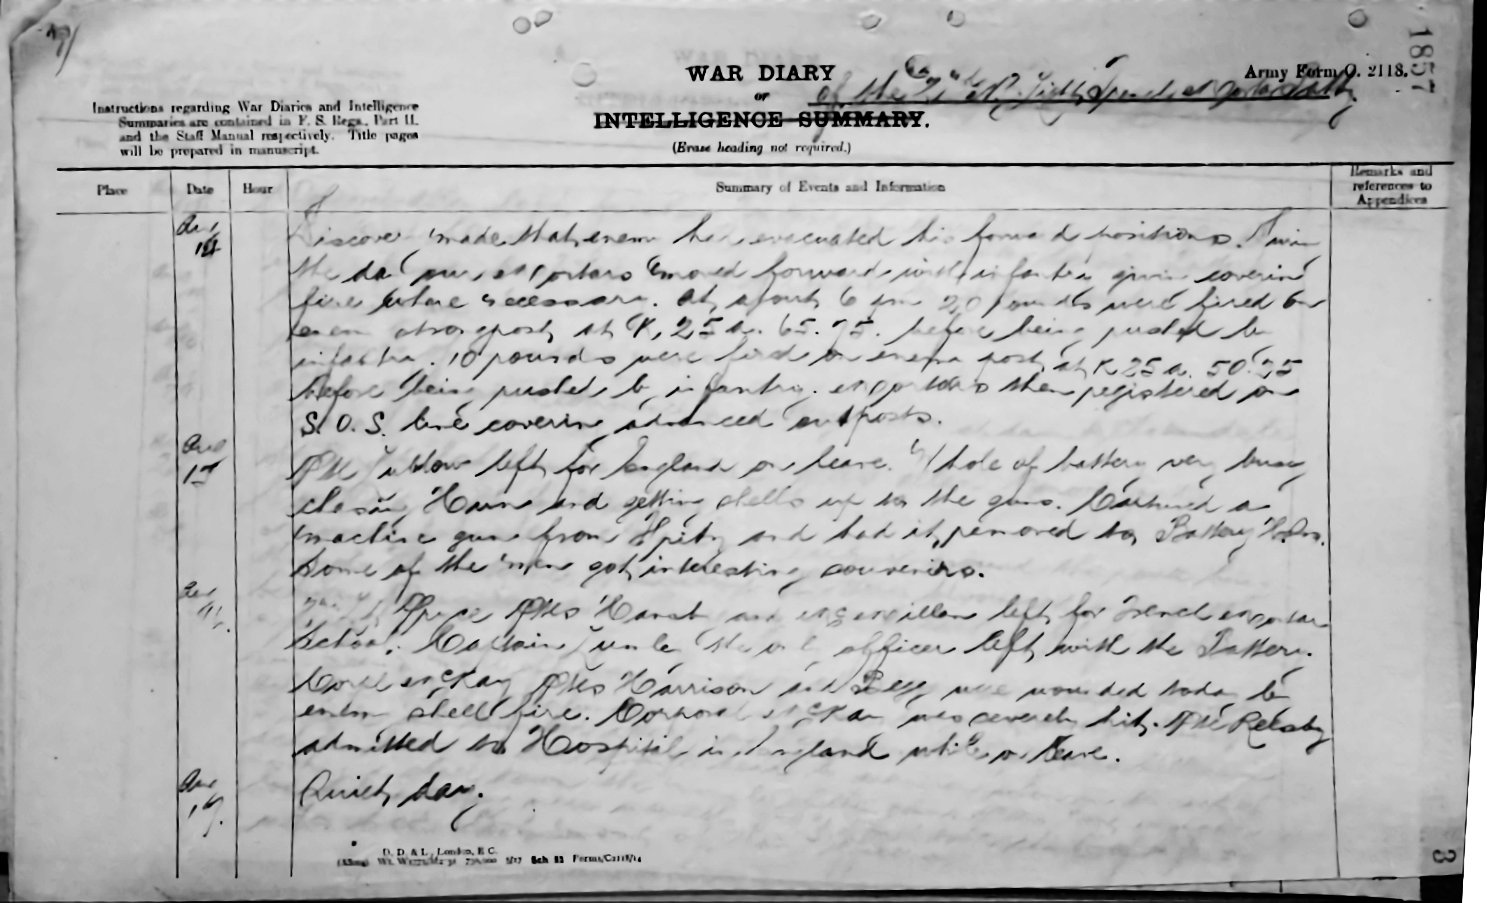 1857
WAR DIARY
of the
Army Form C. 2118.
or
INTELLIGENCE SUMMARY.
(Erase heading not required.)
Instructions regarding War Diaries and Intelligence
Summaries are contained in F. S. Regs., Part II.
and the Staff Manual respectively. Title pages
will be prepared in manuscript.
Place
Date
Hour
Summary of Events and Information
Remarks and
references to
Appendices
14 Discovery made that enemy had evacuated his forward positions. During
the day our mortars moved forward with infantry giving covering
fire where necessary. At about 6 pm 20 rounds were fired on
enemy strong post at K. 25 a. 65. 75. before being pushed by
infantry. 10 rounds were fired on enemy post at K 25 a. 50. 25
before being pushed by infantry. mortars then registered on
S. O. S. line covering advanced outposts.
15 left for England on leave. Whole of battery very busy
chasing Huns and getting shells up to the guns. Captured a
machine gun from and had it removed to Battery Hdrs.
Some of the men got interesting souvenirs.
16. left for Trench mortar
School. Captain the only officer left with the Battery.
McKay Harrison and were wounded today by
enemy shell fire. Corporal McKay was severely hit.
admitted to Hospital in England while on leave.
Quiet day.
D. D. & L., London, E.C.
Sch 52 Forms/C2118/14
3